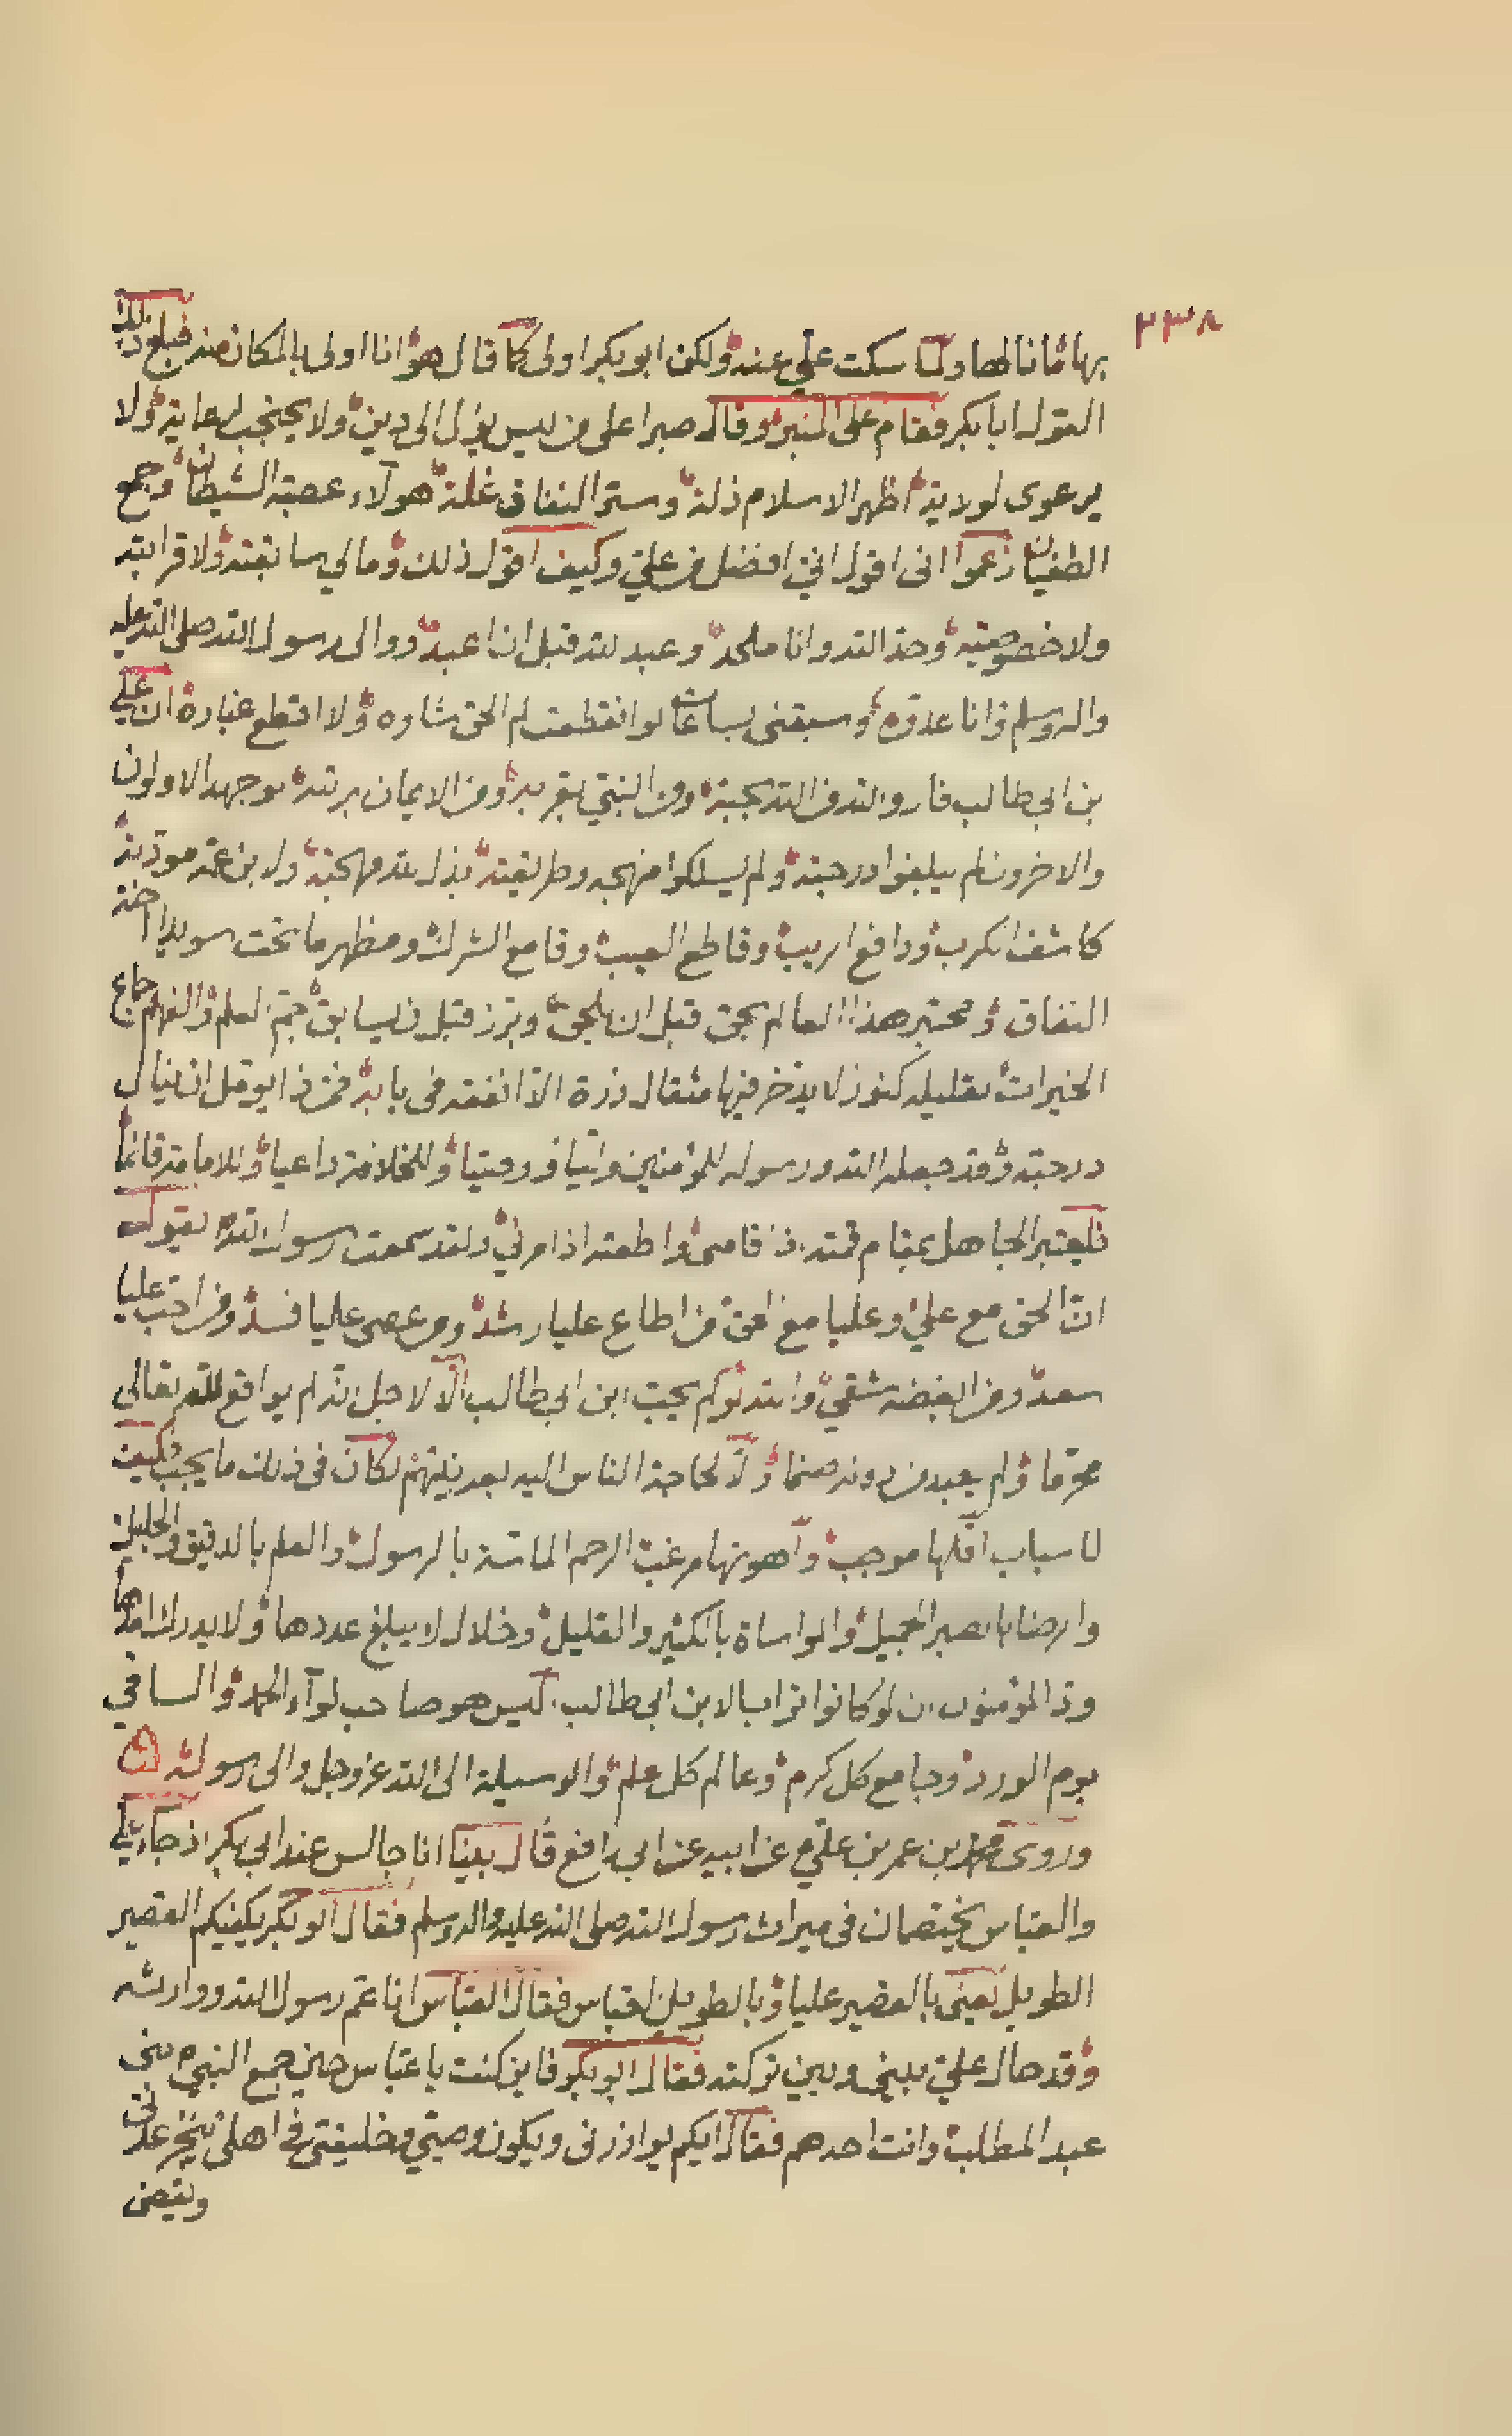 ٢٣٨
بها ما نالها ولما سكت علي عنه ولكن ابو بكر اولى كما قال هو انا اولى بالمكان منه فبلغ ذلك
القول ابا بكر فقام على المنبر وقال صبرا على من ليس يؤل الى دين ولا يحتجب لرعاية ولا
يرعوى لولاية اظهر الاسلام ذلة وستر النفاق غلة هولاء عصبة الشيطان وجمع
الطغيان زعموا انى اقول اني افضل من علي وكيف اقول ذلك ومالي سابقته ولا قرابته
ولا خصوصيته وحد الله وانا ملحد وعبد لله قبل ان اعبد ووالى رسول الله صلى الله عليه
واله وسلم وانا عدوه وسبقنى بساعات لو انقطعت لم الحق شاوه ولا اقطع غباره ان علي
بن ابي طالب فاز والله من الله بمحبة ومن النبي بقربة ومن الايمان برتبة لو جهد الاولون
والاخرون لم يبلغوا درجته ولم يسلكوا منهجه وطريقته بذل لله مهجته ولابن عمه مودته
كاشف الكرب ودافع الريب وقاطع السبب وقامع الشرك ومظهر ما تحت سويداء حبة
النفاق ومحنة هذا العالم لحق قبل ان يلحق وبرز قبل ان يسابق جمع العلم والفهم جماع
الخيرات لقلبه كنوز لا يدخر منها مثقال ذرة الا انفقه فى بابه فمن ذا يومل ان ينال
درجته وقد جعله الله ورسوله للمؤمنين وليا ووصيا وللخلافة داعيا وللامامة قائما
فليعتبر الجاهل بمقام قمته اذ اقامنى واطعته اذ امرني ولقد سمعت رسول الله ص يقول
ان الحق مع علي وعليا مع الحق من اطاع عليا رشد ومن عصى عليا فسد ومن احب عليا
سعد ومن ابغضه شقي والله لو لم يحب ابن ابي طالب الا لاجل انه لم يواقع لله تعالى
محرما ولم يعبد من دونه صنما ولا لحاجة الناس اليه بعد نبيهم لكان فى ذلك ما يجب فكيف
لاسباب اقلها موجب واهونها مرغب الرحم الماسة بالرسول والعلم بالدقيق والجليل
والرضا بالصبر الجميل والمواساة بالكثير والقليل وخلال لا يبلغ عددها ولا يدرك امدها
ود المؤمنون ان لو كانوا تراب لابن ابي طالب اليس هو صاحب لواء الحمد والساقي
يوم الورد وجامع كل كرم وعالم كل علم والوسيلة الى الله عز وجل والى رسوله
وروى محمد بن عمر بن علي عن ابيه عن ابي رافع قال بينا انا جالس عند ابي بكر اذ جاء علي
والعباس يختصمان فى ميراث رسول الله صلى الله عليه واله وسلم فقال ابو بكر يكفيكم القصير
الطويل يعنى بالقصير عليا وبالطويل العباس فقال العباس انا عم رسول الله ووارثه
وقد حال علي بينى وبين تركته فقال ابو بكر فاين كنت يا عباس حين جمع النبي ص بني
عبد المطلب وانت احدهم فقال ايكم يوازرنى ويكون وصيي وخليفتي في اهلي ينجز عدتي
ويقضى